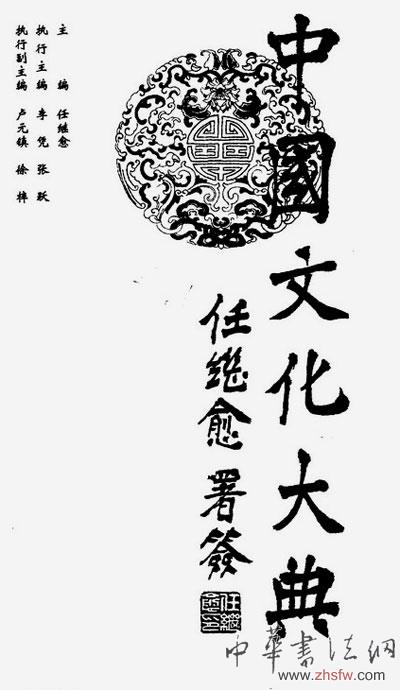 中國文化大典
任继愈 署簽
任继愈印
主 编 任继愈
执行主编 李 凭 张 跃
执行副主编 卢元镇 徐 梓
中華書法網
www.zhsfw.com